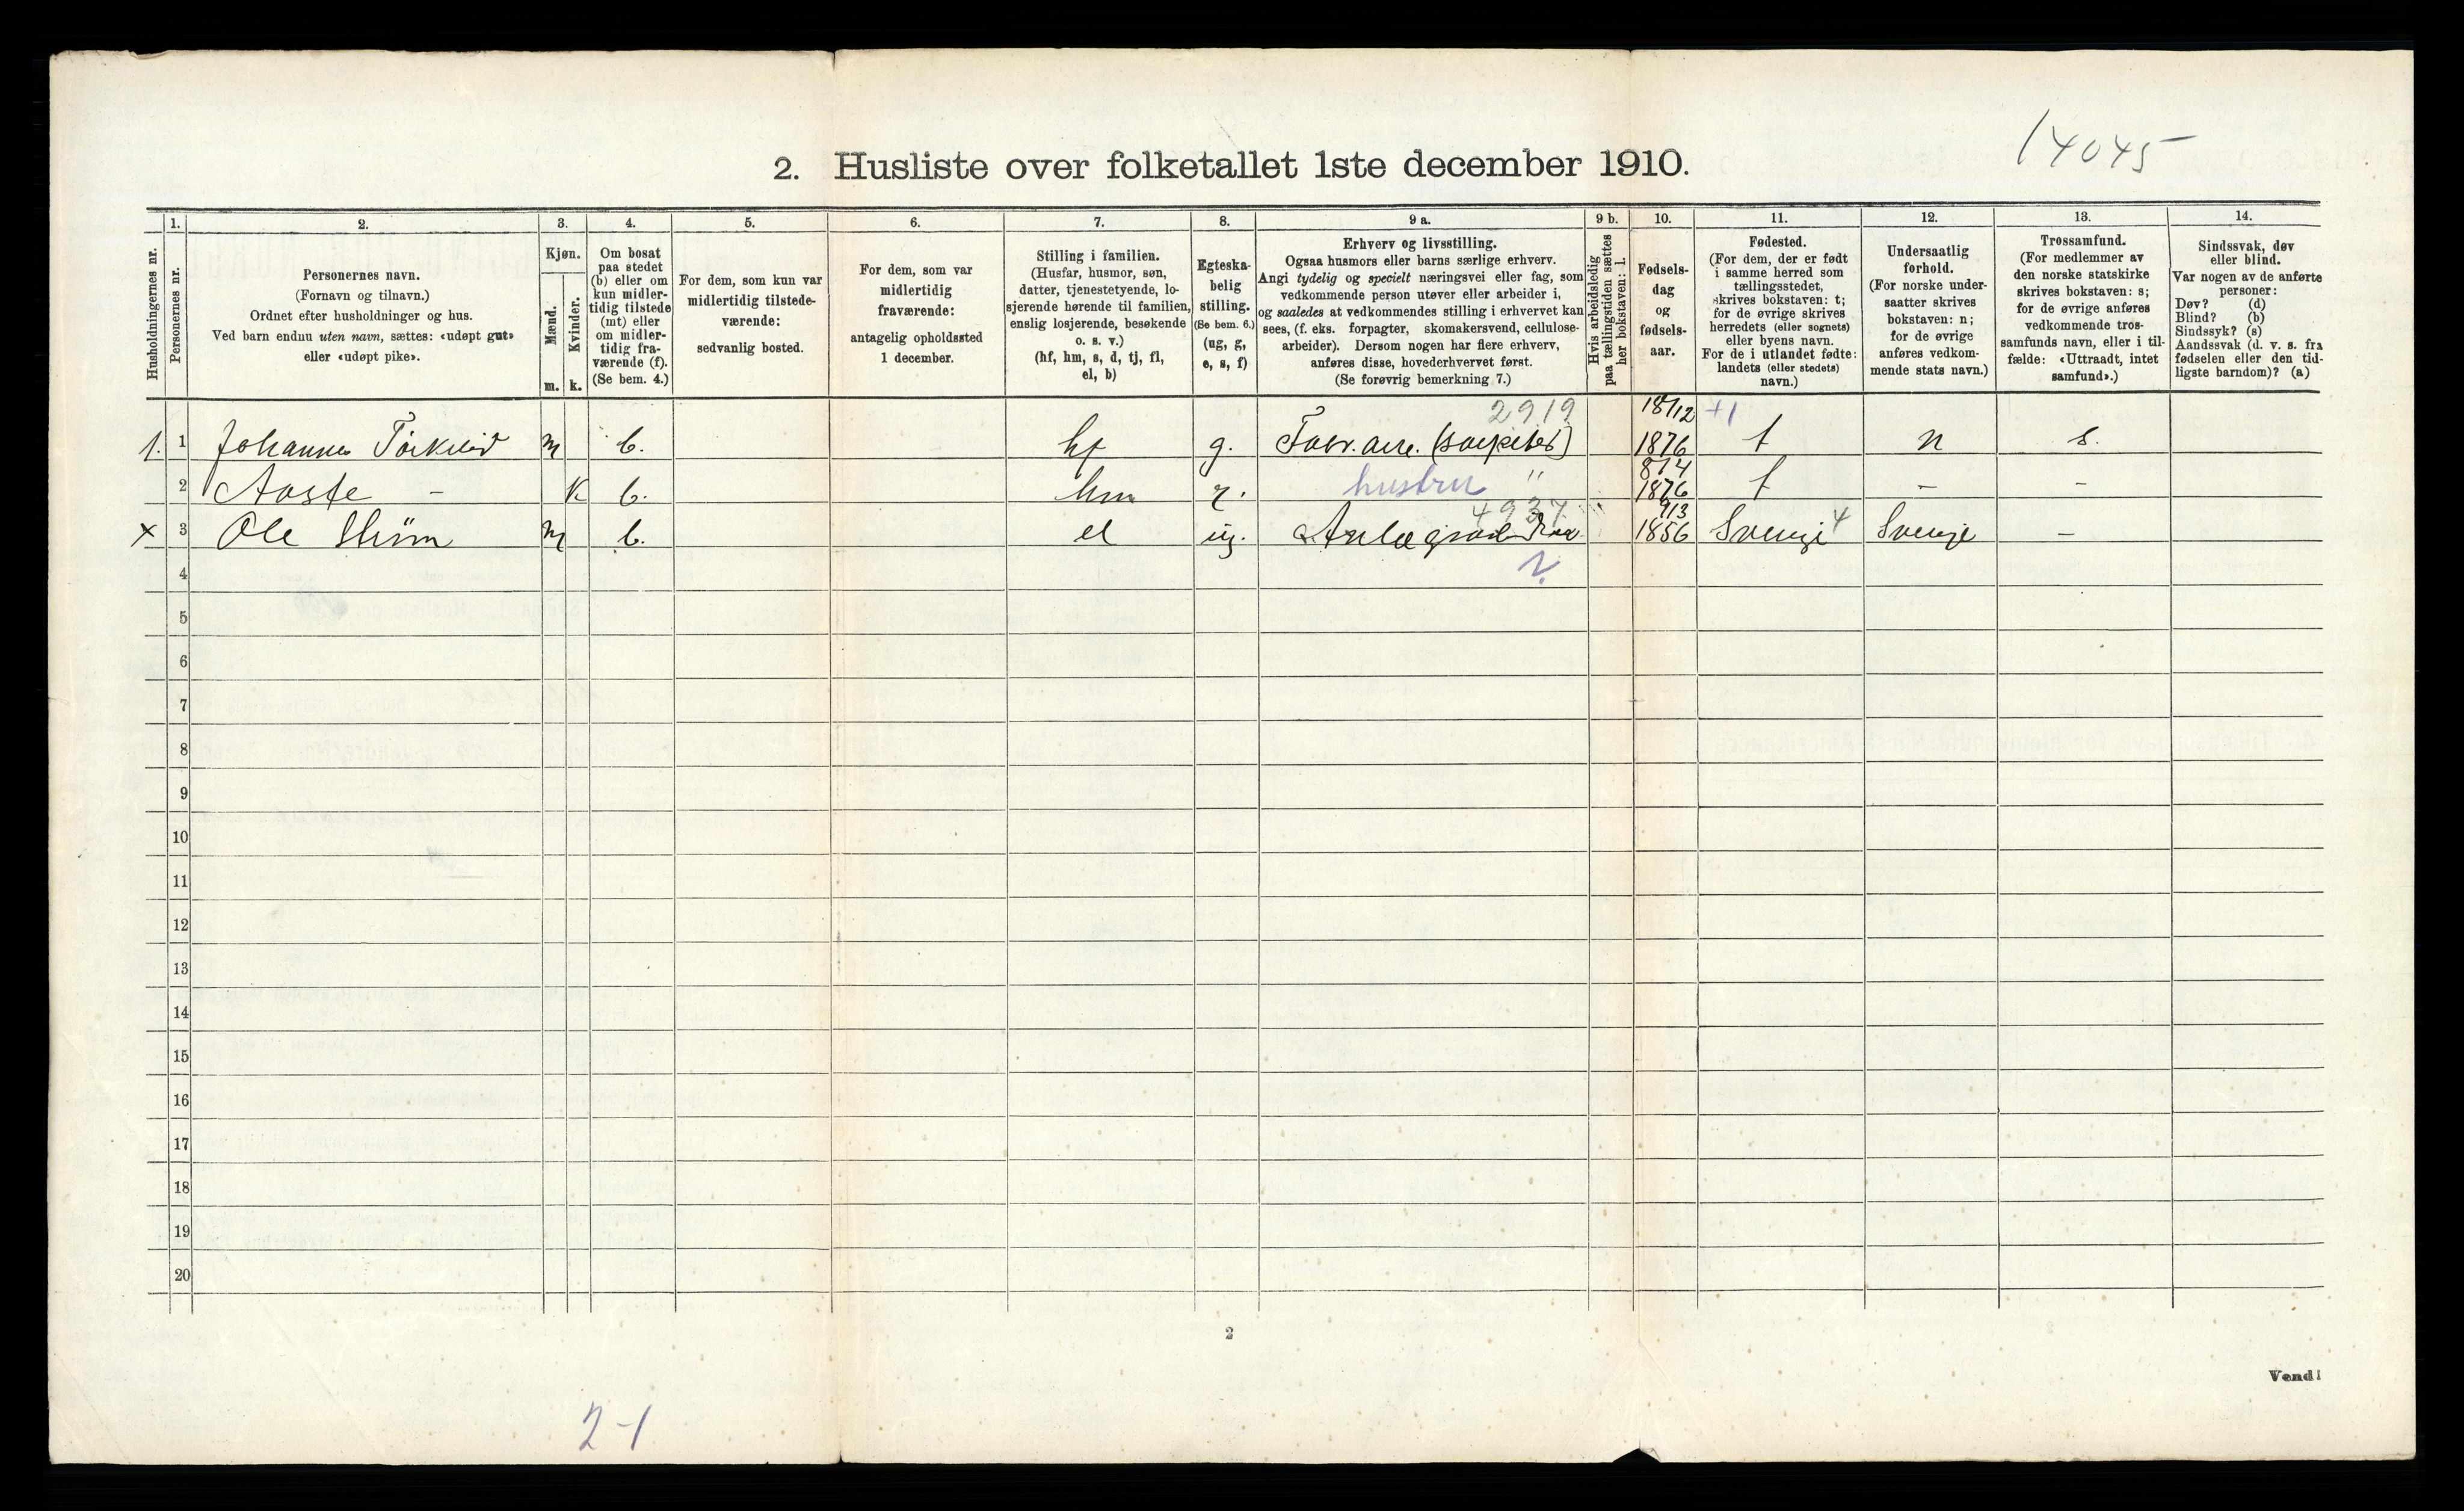 14045
2. Husliste over folketallet 1ste december 1910.
Husholdningernes nr.
1.
Personernes nr.
2.
Personernes navn.
(Fornavn og tilnavn.)
Ordnet efter husholdninger og hus.
Ved barn endnu uten navn, sættes: «udøpt gut»
eller «udøpt pike».
3.
Kjøn.
Mænd.
Kvinder.
m. k.
4.
Om bosat
paa stedet
(b) eller om
kun midler-
tidig tilstede
(mt) eller
om midler-
tidig fra-
værende (f).
(Se bem. 4.)
5.
For dem, som kun var
midlertidig tilstede-
værende:
sedvanlig bosted.
6.
For dem, som var
midlertidig
fraværende:
antagelig opholdssted
1 december.
7.
Stilling i familien.
(Husfar, husmor, søn,
datter, tjenestetyende, lo-
sjerende hørende til familien,
enslig losjerende, besøkende
o. s. v.)
(hf, hm, s, d, tj, fl,
el, b)
8.
Egteska-
belig
stilling.
(Se bem. 6.)
(ug, g,
e, s, f)
9 a.
Erhverv og livsstilling.
Ogsaa husmors eller barns særlige erhverv.
Angi tydelig og specielt næringsvei eller fag, som
vedkommende person utøver eller arbeider i,
og saaledes at vedkommendes stilling i erhvervet kan
sees, (f. eks. forpagter, skomakersvend, cellulose-
arbeider). Dersom nogen har flere erhverv,
anføres disse, hovederhvervet først.
(Se forøvrig bemerkning 7.)
9 b.
Hvis arbeidsledig
paa tællingstiden sættes
her bokstaven: l.
10.
Fødsels-
dag
og
fødsels-
aar.
11.
Fødested.
(For dem, der er født
i samme herred som
tællingsstedet,
skrives bokstaven: t;
for de øvrige skrives
herredets (eller sognets)
eller byens navn.
For de i utlandet fødte:
landets (eller stedets)
navn.)
12.
Undersaatlig
forhold.
(For norske under-
saatter skrives
bokstaven: n;
for de øvrige
anføres vedkom-
mende stats navn.)
13.
Trossamfund.
(For medlemmer av
den norske statskirke
skrives bokstaven: s;
for de øvrige anføres
vedkommende tros-
samfunds navn, eller i til-
fælde: «Uttraadt, intet
samfund».)
14.
Sindssvak, døv
eller blind.
Var nogen av de anførte
personer:
Døv? (d)
Blind? (b)
Sindssyk? (s)
Aandssvak (d. v. s. fra
fødselen eller den tid-
ligste barndom)? (a)
2919 18/12 +1
1. 1 Johannes m b. hf g. 1876 t n s.
8/4
2 Aaste - K b. hm g. hustru " 1876 t - -
4937 9/3
x 3 Ole m b. el ug. 1856 Sverige 4 Sverige -
4 ?
5
6
7
8
9
10
11
12
13
14
15
16
17
18
19
20
2
Vend!
2-1